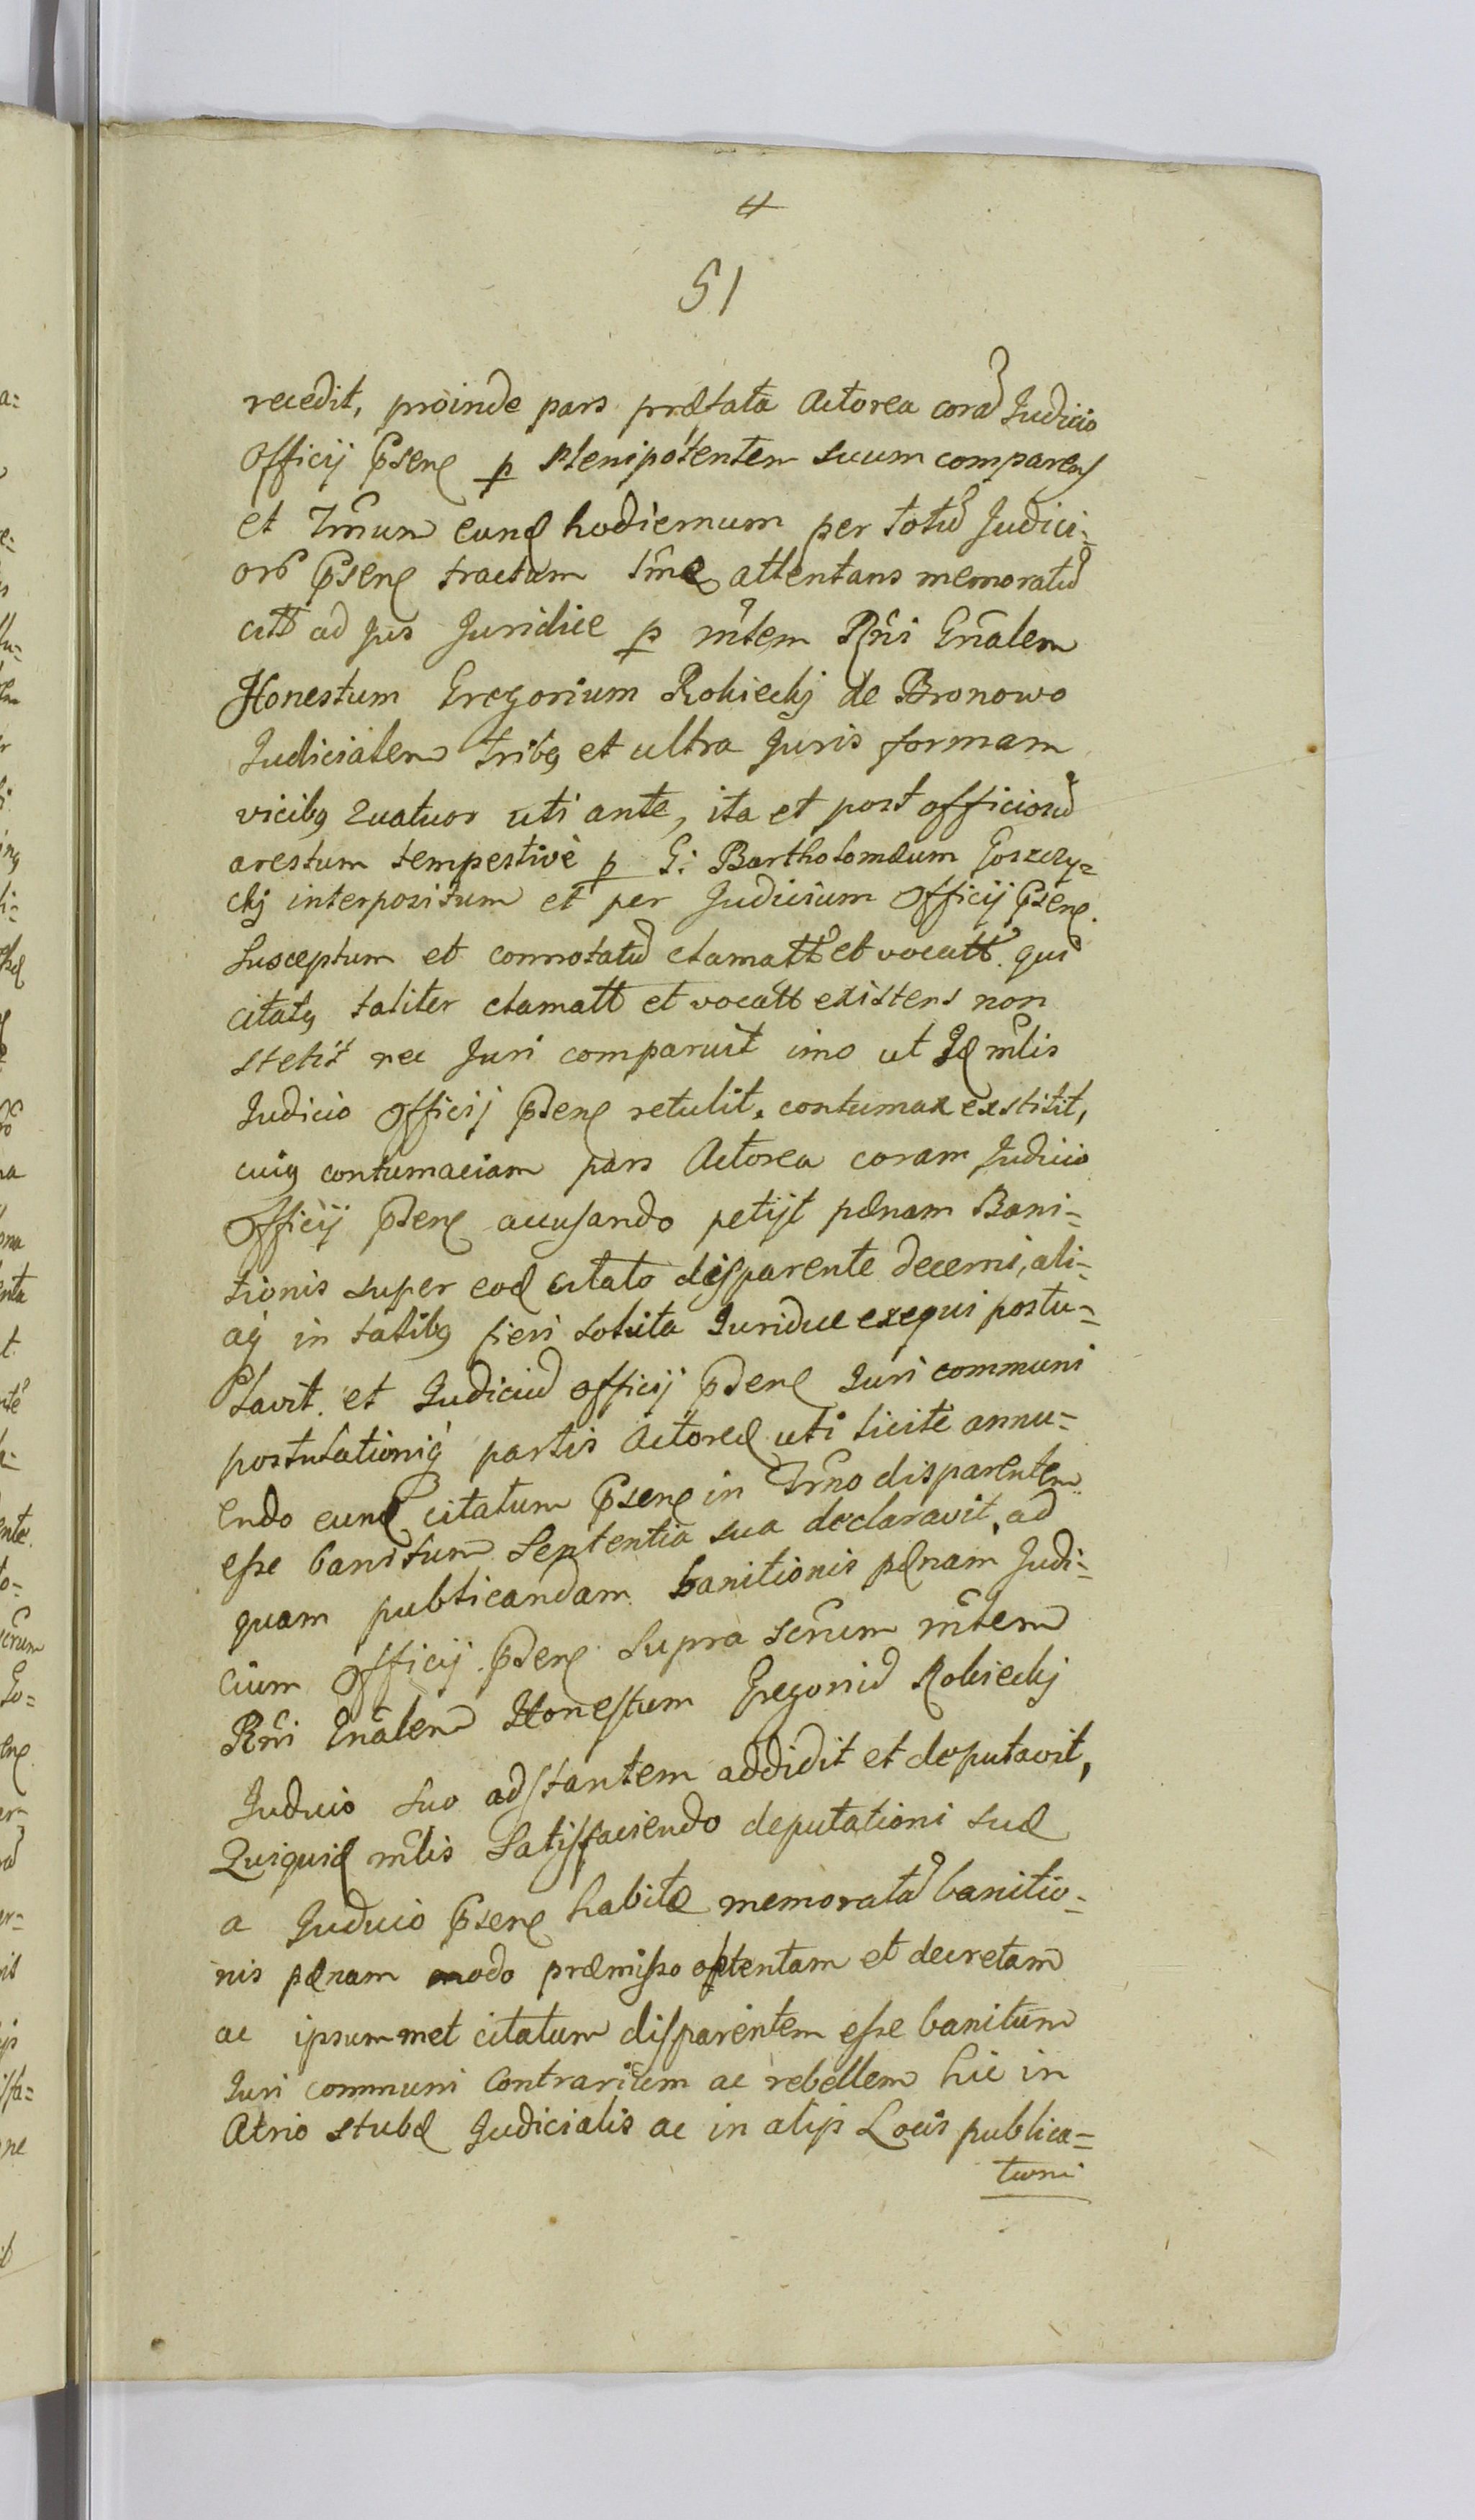 4
51
recedit, proinde pars præfata Actorea corã Judicio
Officij Psens p Plenipotentem suum comparens
et Tmñum eund hodiernum per totũ Judici=
orũ Psens tractum Tmæ attentans memoratũ
citt ad Jus Juridice p mltem Rñi Gñalem
Honestum Gregorium Rokicckj de Bronowo
Judicialem tribq et ultra Juris formam
vicibq quatuor uti ante, ita et post officiosũ
arestum tempestivè p G: Bartholomæum
ckj interpositum et per Judicium Officij Psens.
Susceptum et connotatũ clamatt et vocatt. qui
citatq taliter clamatt et vocatt existens non
stetit nec Juri comparuit imo ut Id mlis
Judicio Officij Psens retulit, contumax exstitit,
cuiq contumaciam pars Actorea coram Judicio
Officij Psens accusando petijt pænam Bani=
tionis super eod citato disparente decerni, ali=
aq in talibq fieri solita Juridice exequi postu=
lavit. et Judiciũ officij Psens Juri communi
postulationiq partis Actoreæ uti licite annu=
endo eund citatum Psens in Trño disparentem
esse banitum Sententia sua declaravit, ad
quam publicandam banitionis pænam Judi=
cium Officij Psens supra scrum mltem
Rñi Gñalem Honestum Gregoriũ Rokicckj
Judicio suo adstantem addidit et deputavit,
Quiquid mlis Satisfaciendo deputationi suæ
a Judicio Psens habitæ memoratã banitio=
nis pænam modo præmisso obtentam et decretam
ac ipsummet citatum disparentem esse banitum
Juri communi Contrarium ac rebellem hic in
Atrio stubæ Judicialis ac in alijs Locis publica=
tioni